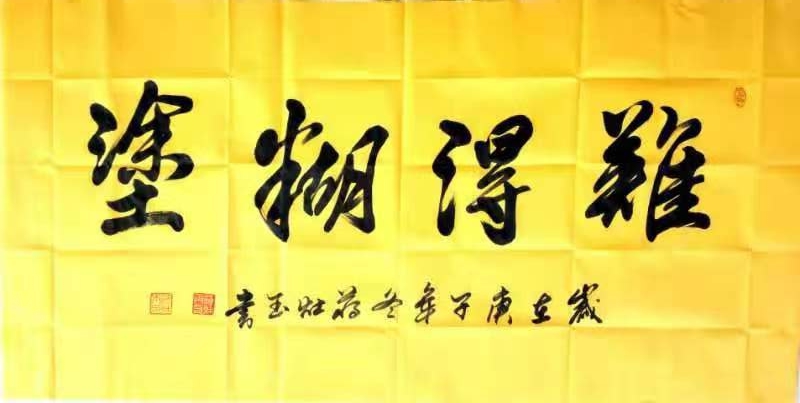 難得糊塗
歲在庚子年冬蔣壯玉書